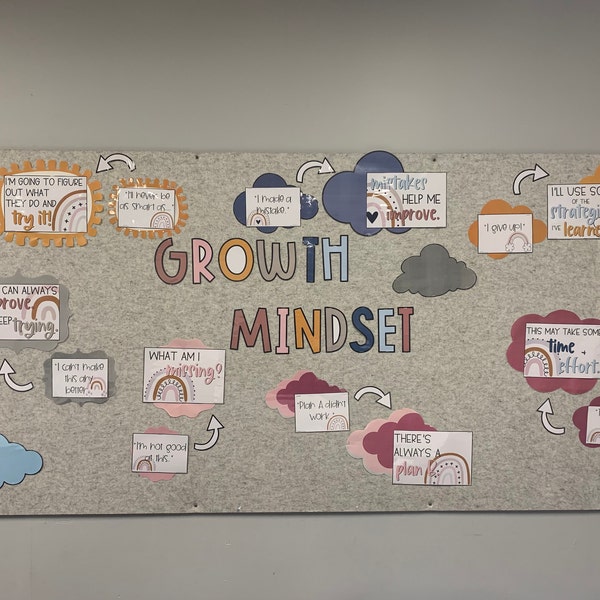 I'M GOING TO FIGURE
OUT WHAT
THEY DO AND
try it!
"I'll never be
as smart as
"I made a
mistake."
mistakes
HELP ME
improve.
"I give up!"
I'LL USE
OF THE
strategies
I'VE
learned
GROWTH
MINDSET
CAN ALWAYS
trying.
"I can't make
this any
better."
WHAT AM I
missing?
"I'm not good
at this."
"Plan A didn't
work."
THERE'S
ALWAYS A
plan
THIS MAY TAKE SOME
time +
effort.